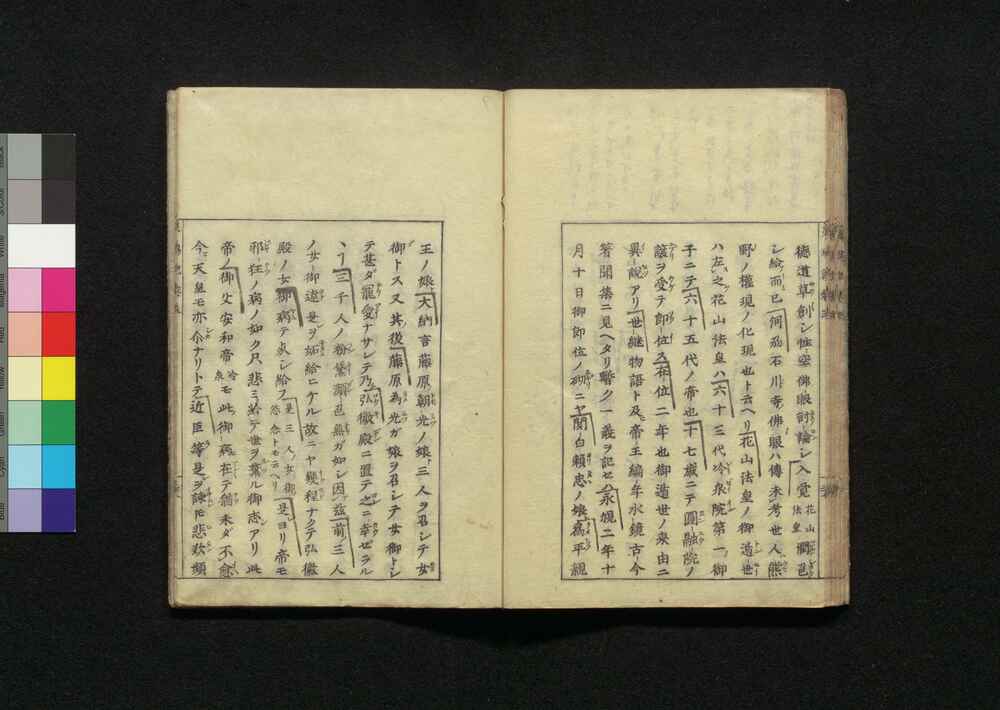 徳道草創シ性空佛眼討論シ入覚花山法皇潤色
シ給而已何為石川寺佛眼ハ傳未考世人熊
野ノ權現ノ化現也ト云ヘリ花山法皇ノ御遁世
ハ左之花山法皇ハ六十三代冷泉院第一御
子ニテ六十五代ノ帝也十七歳ニテ圓融院ノ
譲ヲ受テ即位ス在位二年也御遁世ノ来由ニ
異説アリ世継物語ト及帝王編年水鏡古今
著聞集ニ見ヘタリ暫ク一義ヲ記セハ永観二年十
月十日御即位ノ砌ニヤ関白頼忠ノ娘為平親
王ノ娘大納言藤原朝光ノ娘三人ヲ召シテ女
御トス又其後藤原為光ガ娘ヲ召シテ女御トシ
テ甚ダ寵愛ナサレテ乃弘徽殿ニ置テ之ニ幸ゼラル
丶丁三千人ノ粉黛顔色無ガ如シ因玆前ノ三人
ノ女御違是ヲ妬給ニケル故ニヤ幾程ナクテ弘徽
殿ノ女御病テ失シ給フ是三人ノ女御怨念トモ云ヘリ是ヨリ帝モ
邪狂ノ病ノ如ク只悲ミ給テ世ヲ棄ル御志アリ此
帝ノ御父安和帝冷泉モ此御病在テ猶未ダ不愈
今天皇モ亦尒ナリトテ近臣等是ヲ諌圧悲歎頻